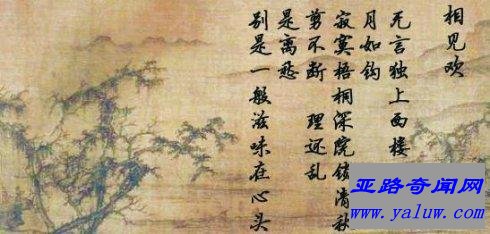 相见欢
无言独上西楼
月如钩
寂寞梧桐深院锁清秋
剪不断 理还乱
是离愁
别是一般滋味在心头
亚路奇闻网
www.yaluw.com